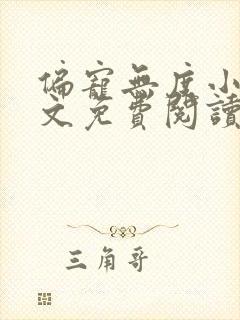 偏寵無度小
文免費閱讀
三角哥